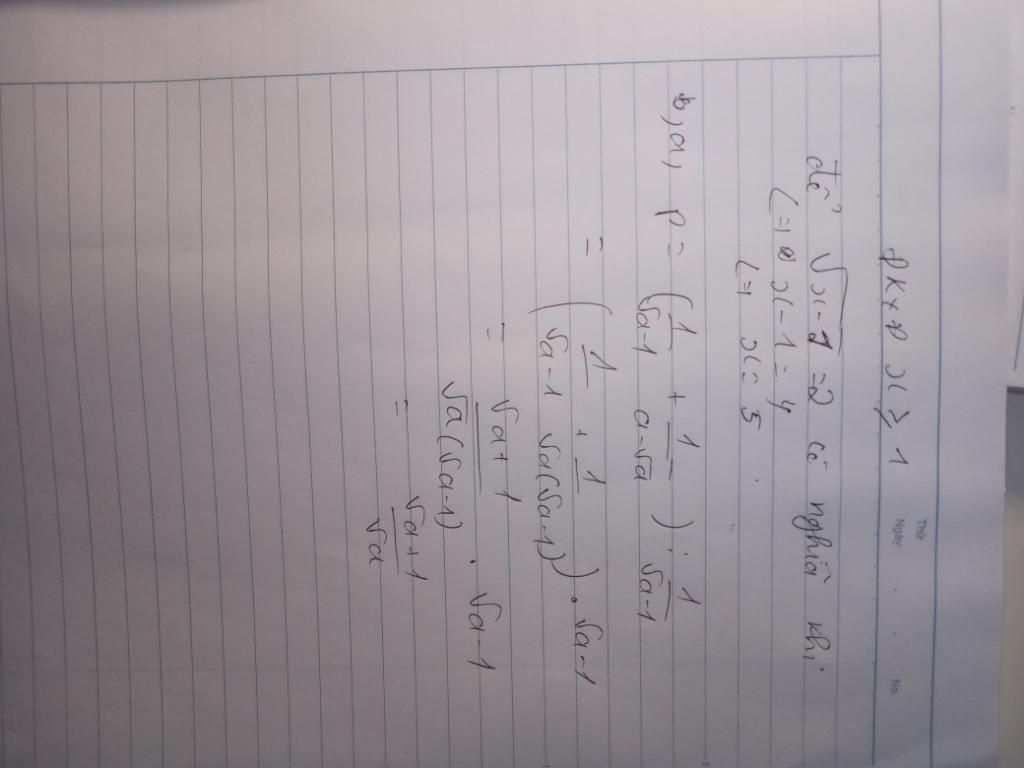 Thứ
Ngày . . No.
ĐKXĐ x ≥ 1
để √x-1 = 2 có nghĩa khi
<=> x - 1 = 4
<=> x = 5
b, a, P = (1/(√a-1) + 1/(a-√a)) : 1/(√a-1)
= (1/(√a-1) + 1/(√a(√a-1))) . √a-1
= (√a+1)/(√a(√a-1)) . √a-1
= (√a+1)/√a